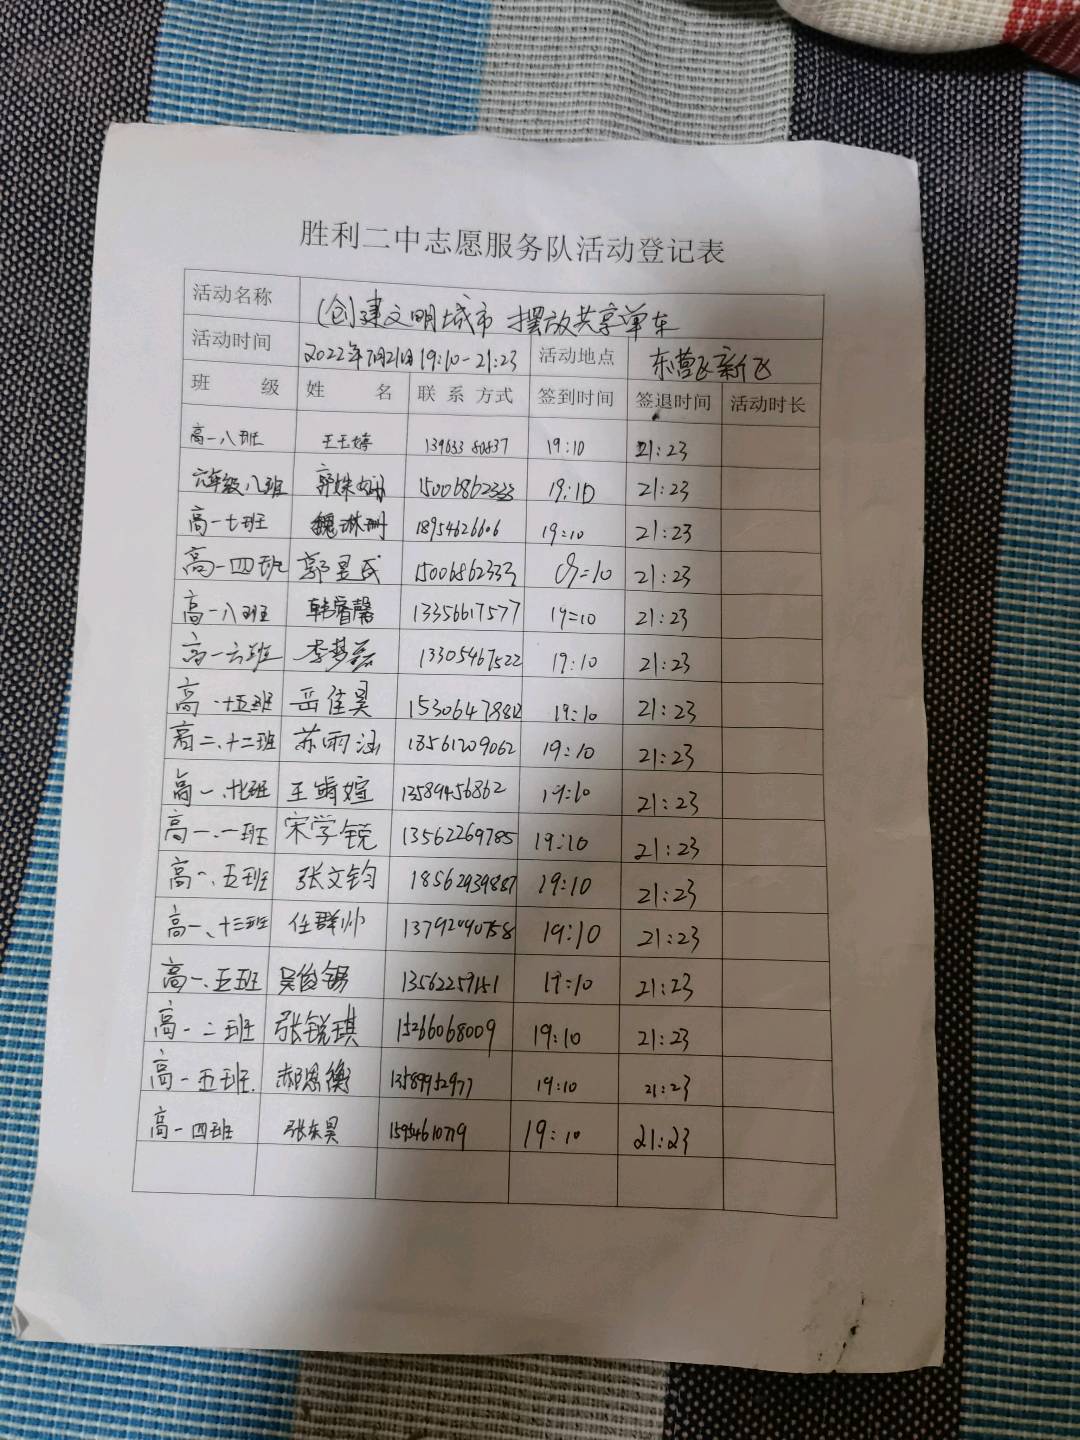 胜利二中志愿服务队活动登记表
活动名称 创建文明城市 摆放共享单车
活动时间 2022年7月21日 19:10-21:23 活动地点 东营飞新飞
班 级 姓 名 联系方式 签到时间 签退时间 活动时长
高一八班 王玉婷 19:10 21:23
六年级八班 15006862333 19:10 21:23
高一七班 魏琳珊 18954626606 19=10 21:23
高一四班 郭昱民 15006862333 19=10 21:23
高一八班 韩睿馨 13356617577 19=10 21:23
高一六班 李梦磊 13305467522 19:10 21:23
高一十五班 岳佳昊 19:10 21:23
高二、十二班 苏雨涵 18561209062 19:10 21:23
高一、十七班 王婍媗 13589456862 19:10 21:23
高一、一班 宋学锐 13562269785 19:10 21:23
高一、五班 张文钧 18562939887 19:10 21:23
高一、十三班 任群帅 13792090758 19:10 21:23
高一、五班 吴俊锡 13562259151 19:10 21:23
高一二班 张锐琪 15266068009 19:10 21:23
高一五班. 郝恩衡 13589952977 19:10 21:23
高一四班 张东昊 15954610719 19:10 21:23